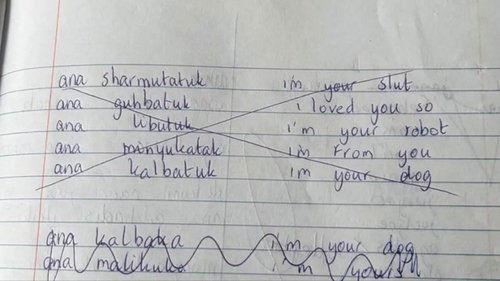 ana sharmutatuk i'm your slut
ana guhbatuk i loved you so
ana ubutuk i'm your robot
ana minyukatak i'm from you
ana kalbatuk i'm your dog
ana kalbaka i'm your dog
ana malikuka i'm yours